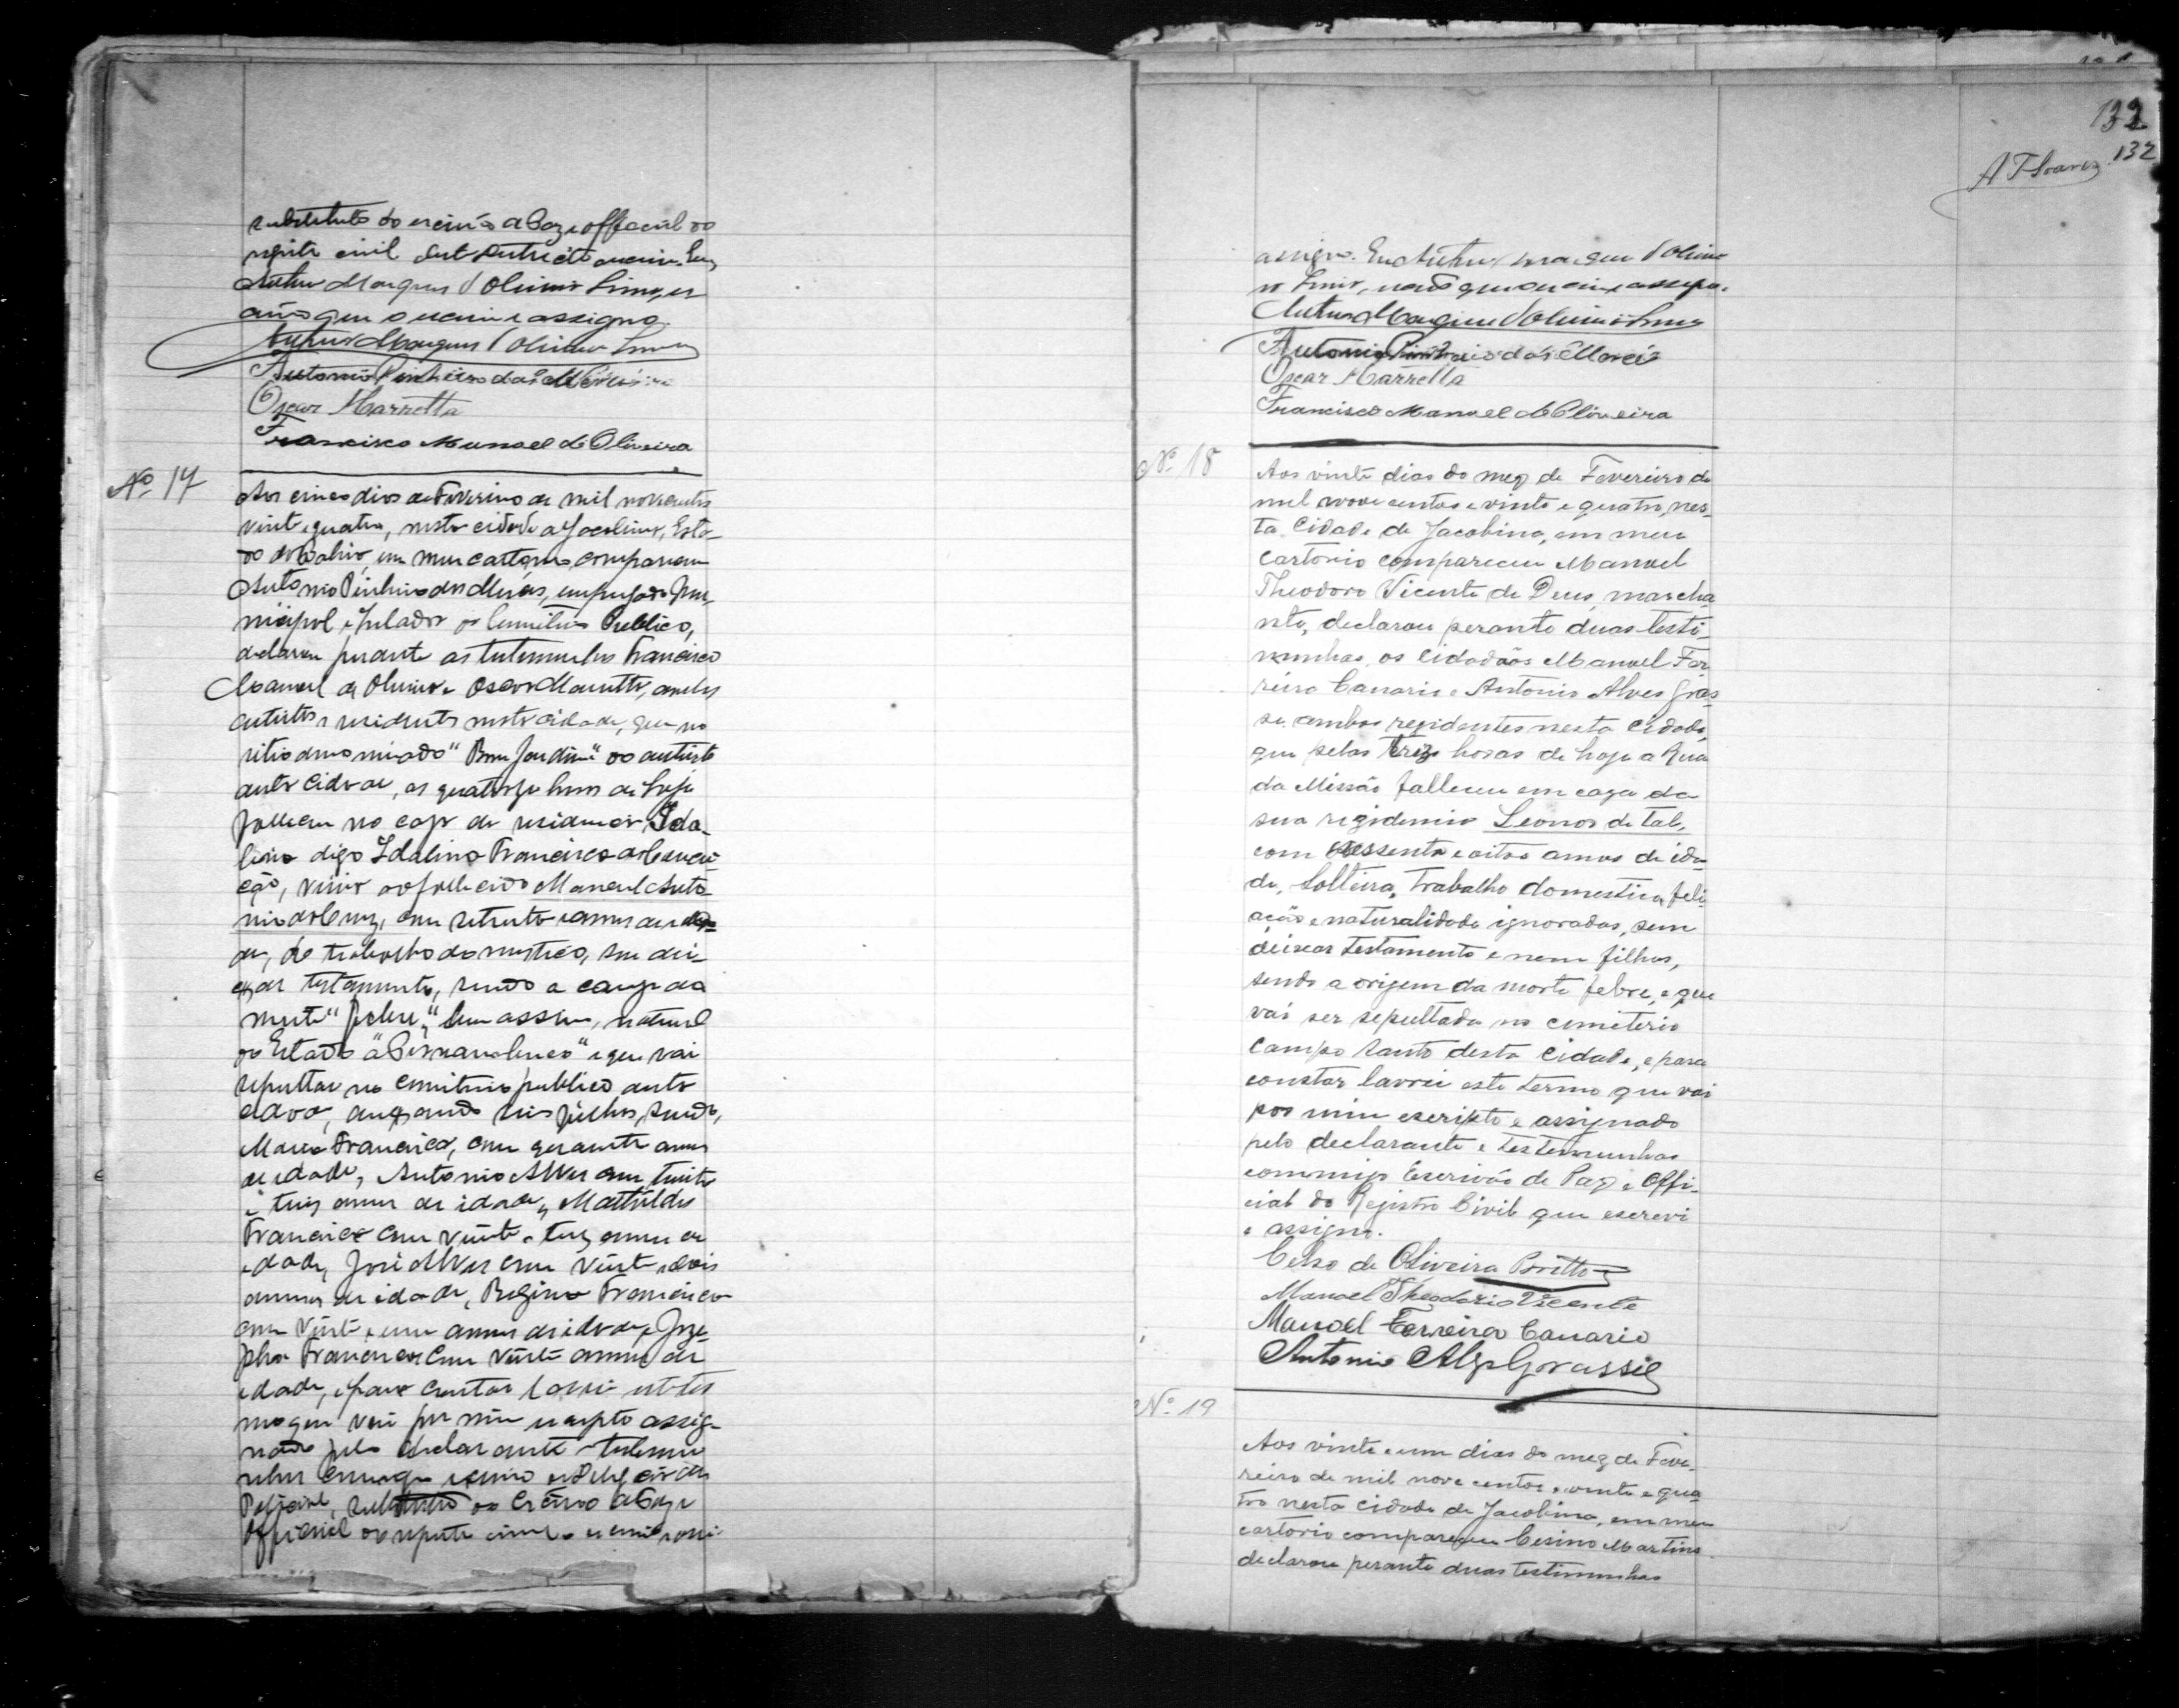 substituto do escrivão de Paz e official do
registro civil deste districto escrevi. Eu,
Arthur Marques d'Oliveira Lima, es
crivão que o escrevi e assigno.
Arthur Marques d'Oliveira Lima
Antonio Pinheiro das Mercês
Oscar Marretta
Francisco Manoel de Oliveira
Nº 17
Aos cinco dias de Fevereiro de mil novecentos
vinte e quatro, nesta cidade de Jacobina, Esta-
do da Bahia, em meu cartorio, compareceu
Antonio Pinheiro das Mercês, empregado Mu-
nicipal e zelador do Cemiterio Publico,
declarou perante as testemunhas Francisco
Manoel de Oliveira e Oscar Marretta, ambos
artistas e residentes nesta cidade, que no
sitio denominado "Bom Jardim" do districto
desta cidade, as quatorze horas de hoje
falleceu na casa de residencia Ida-
lina digo Idalina Francisca da Concei-
ção, viuva do fallecido Manoel Anto-
nio da Cruz, com setenta annos de ida-
de, de trabalho domestico, sem dei-
xar testamento, sendo a causa da
morte "febre", bem assim, natural
do Estado de "Pernambuco" e que vai
sepultar no cemiterio publico desta
cidade, deixando seis filhos, sendo,
Maria Francisca, com quarenta annos
de idade, Antonio Alves com trinta
e tres annos de idade, Mathildes
Francisca com vinte e tres annos de
idade, José Alves com vinte e dois
annos de idade, Regina Francisca
com vinte e um annos de idade, e Joze-
pha Francisca com vinte annos de
idade, e para constar lavrei este ter
mo que vai por mim escripto assig-
nado pelo declarante e testemu
nhas commigo escrivão
Policial, substituto do Escrivão de Paz e
Official do registro civil o escrevi e assi-
132
132
A T Soares
assigno. Eu Arthur Marques d'Olivei
ra Lima, escrivão que o escrevi e assigno.
Arthur Marques d'Oliveira Lima
Antonio Pinheiro das Mercês
Oscar Marretta
Francisco Manoel de Oliveira
Nº 18
Aos vinte dias do mez de Fevereiro de
mil nove centos e vinte e quatro, nes-
ta Cidade de Jacobina, em meu
cartorio compareceu Manoel
Theodoro Vicente de Deus, marcha
nte, declarou peranto duas testi-
munhas, os cidadãos Manoel Fer
reira Canario e Antonio Alves Gras
se, ambos rezidentes nesta cidade,
que pelas treze horas de hoje a Rua
da Missão falleceu em caza de
sua rezidencia Leonor de tal,
com sessenta e oitos annos de ida
de, Solteira, trabalho domestico, feli-
ação e naturalidade ignoradas, sem
deixar testamento e nem filhos,
sendo a origem da morte febre, e que
vai ser sepultada no cemiterio
campo santo desta cidade, e para
constar lavrei este termo que vai
por mim escripto e assignado
pelo declarante e testemunhas
commigo Escrivão de Paz e Offi-
cial do Registro Civil que escrevi
e assigno.
Celso de Oliveira Britto
Manoel Theodorio Vicente
Manoel Ferreira Canario
Antonio Alz Grassie
Nº 19
Aos vinte e um dias do mez de Feve-
reiro de mil nove centos e vinte e qua
tro nesta cidade de Jacobina, em meu
cartorio compareceu Cesino Martins
declarou peranto duas testimunhas